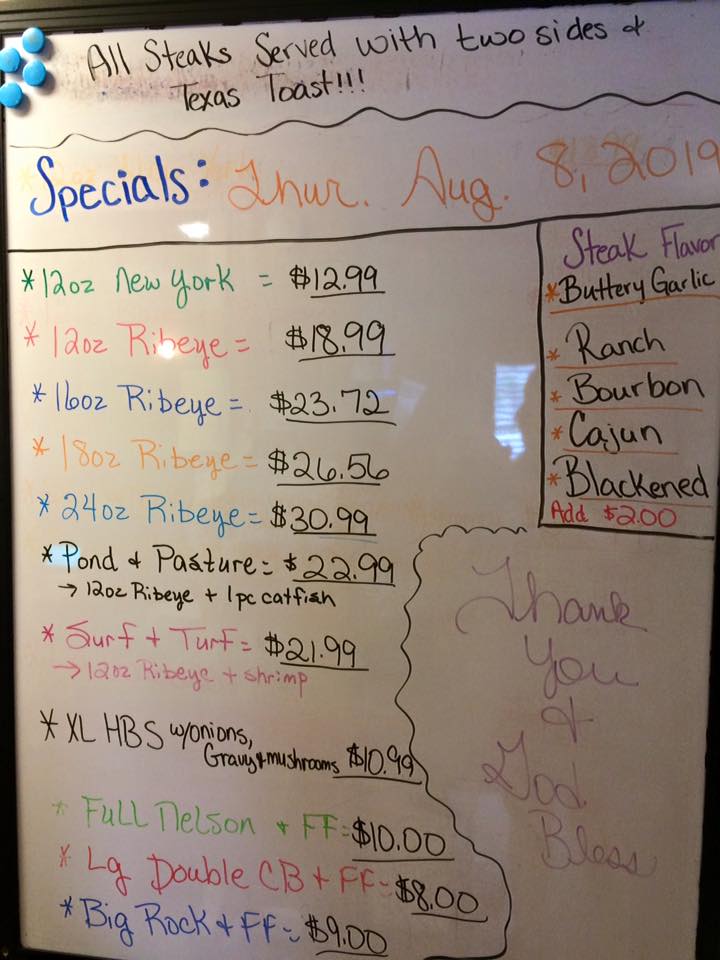 All Steaks Served with two sides &
Texas Toast!!!
Specials: Thur. Aug. 8, 2019
*12oz New York = $12.99
* 12oz Ribeye = $18.99
* 16oz Ribeye = $23.72
* 18oz Ribeye = $26.56
* 24oz Ribeye = $30.99
* Pond & Pasture = $22.99
→ 12oz Ribeye + 1pc catfish
* Surf + Turf = $21.99
→ 12oz Ribeye + shrimp
* XL HBS w/onions,
Gravy & mushrooms $10.99
* Full Nelson & FF = $10.00
* Lg Double CB + FF = $8.00
* Big Rock & FF = $9.00
Steak Flavor
*Buttery Garlic
* Ranch
* Bourbon
* Cajun
* Blackened
Add $2.00
Thank
You
&
God
Bless